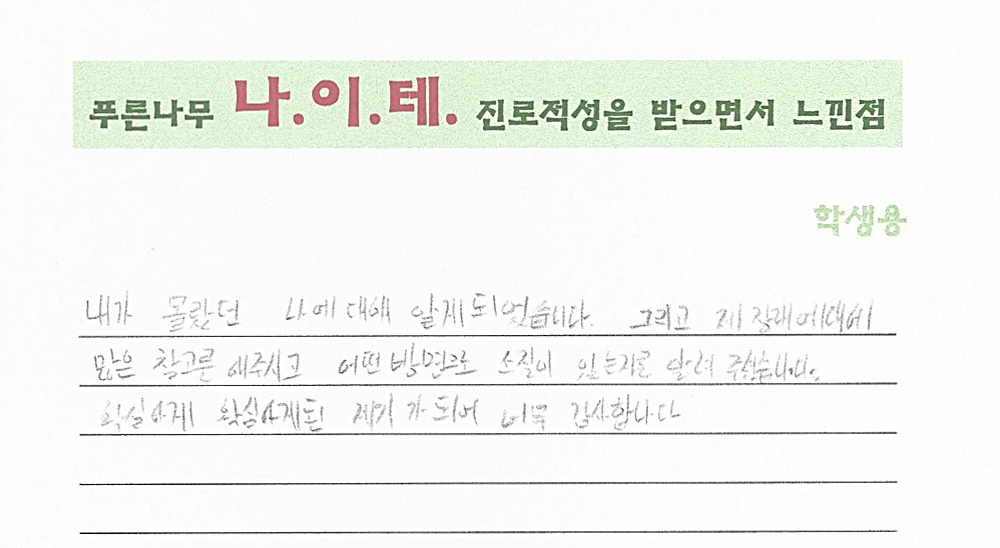 푸른나무 나.이.테. 진로적성을 받으면서 느낀점
학생용
내가 몰랐던 나에 대해 알게되었습니다. 그리고 제 장래에대해
많은 참고를 해주시고 어떤 방면으로 소질이 있는지를 알려 주셨습니다.
확실하게 확실하게된 계기가 되어 너무 감사합니다